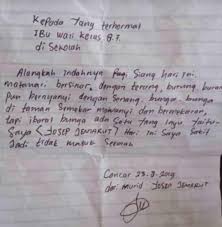 Kepada Yang terhormat
IBu wali kelas 8.F.
di Sekolah
Alangkah indahnya Pagi Siang hari ini.
matahari bersinar dengan terang, burung, burung
Pun bernyanyi dengan Senang, bunga, bunga
di taman Semekar mewangi dan bermekaran,
tapi ibarat bunga ada Satu yang layu Yaitu-
Saya <JOSEP JEMARUT> Hari ini Saya Sakit
Jadi tidak masuk Sekolah
Cancar 23.9.2019
dari Murid JOSEP JEMARUT